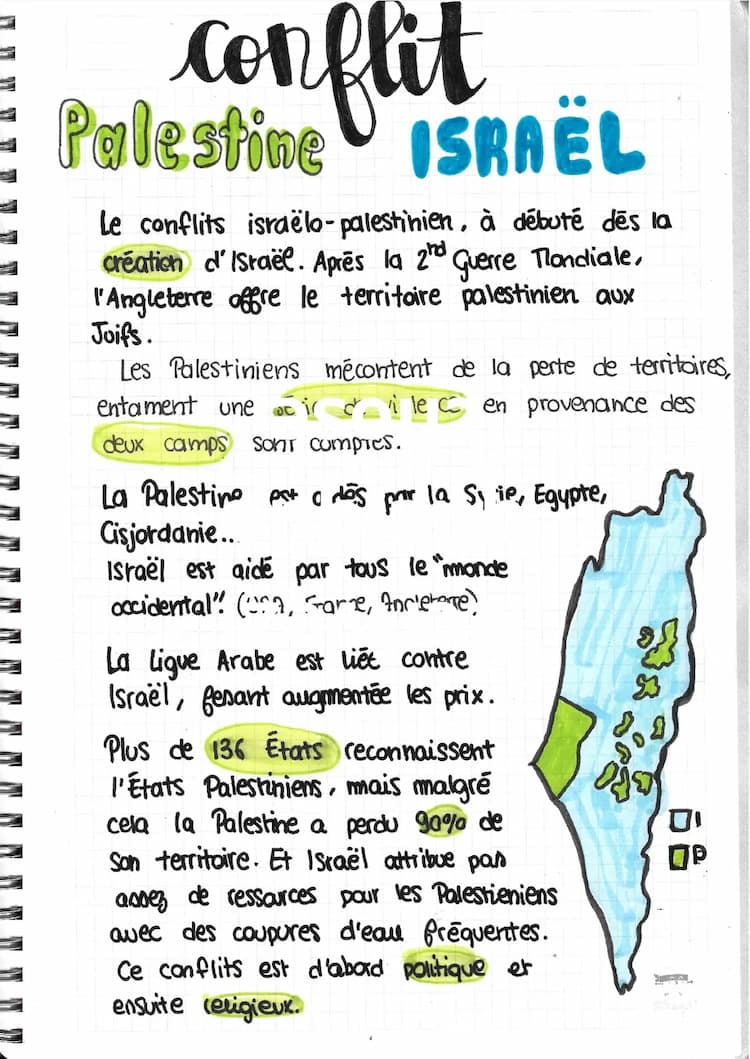 conflit
Palestine ISRAËL
Le conflits israëlo-palestinien, à débuté dès la
création d'Israël. Après la 2nd Guerre Mondiale,
l'Angleterre offre le territoire palestinien aux
Joifs.
Les Palestiniens mécontent de la perte de territoires,
entament une en provenance des
deux camps sont
La Palestine par la Syrie, Egypte,
Cisjordanie..
Israël est aidé par tous le "monde
occidental".
La Ligue Arabe est liét contre
Israël, fesant augmentée les prix.
Plus de 136 États reconnaissent
l'États Palestiniens, mais malgré
cela la Palestine a perdu 90% de
son territoire. Et Israël attribue pas
assez de ressources pour les Palestieniens
avec des coupures d'eau fréquentes.
Ce conflits est d'abord politique et
ensuite religieux.
I
P